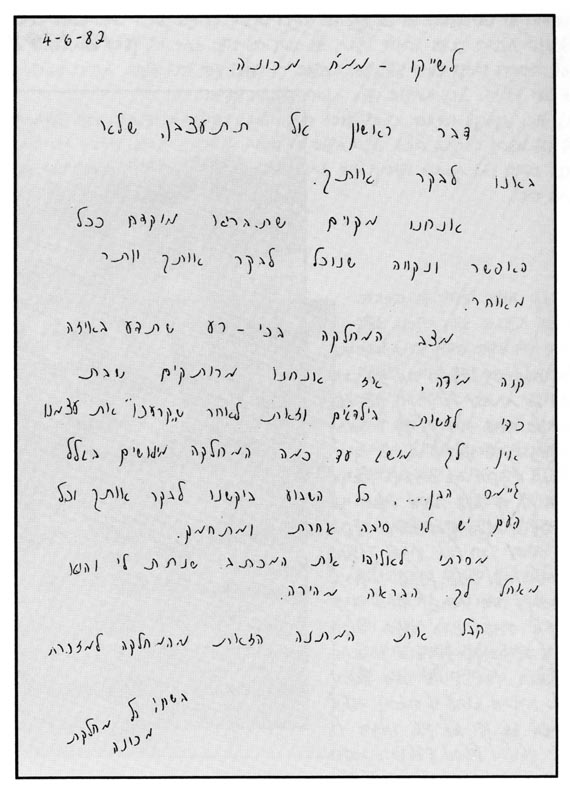 4-6-82
לשייקו - ממ"ח מכונה.
דבר ראשון אל תתעצבן, שלא
באנו לבקר אותך.
אנחנו מקוים שתבריא מוקדם ככל
האפשר ונקווה שנוכל לבקר אותך יותר
מאוחר.
מצב המחלקה בכי - רע שתדע באיזה
קנה מידה, אז אנחנו מרותקים שבת
כדי לעשות וזאת לאחר "שקרענו" את עצמנו
אין לך מושג עד כמה המחלקה מיואשים בגלל
ג'יימס הבן.... כל השבוע ביקשנו לבקר אותך וכל
פעם יש לו סיבה אחרת ומתחמק.
מסרתי לאליהו את המכתב שנתת לי והוא
מאחל לך הבראה מהירה.
קבל את המתנה הזאת מהמחלקה למזכרת
בשם כל מחלקת
מכונה